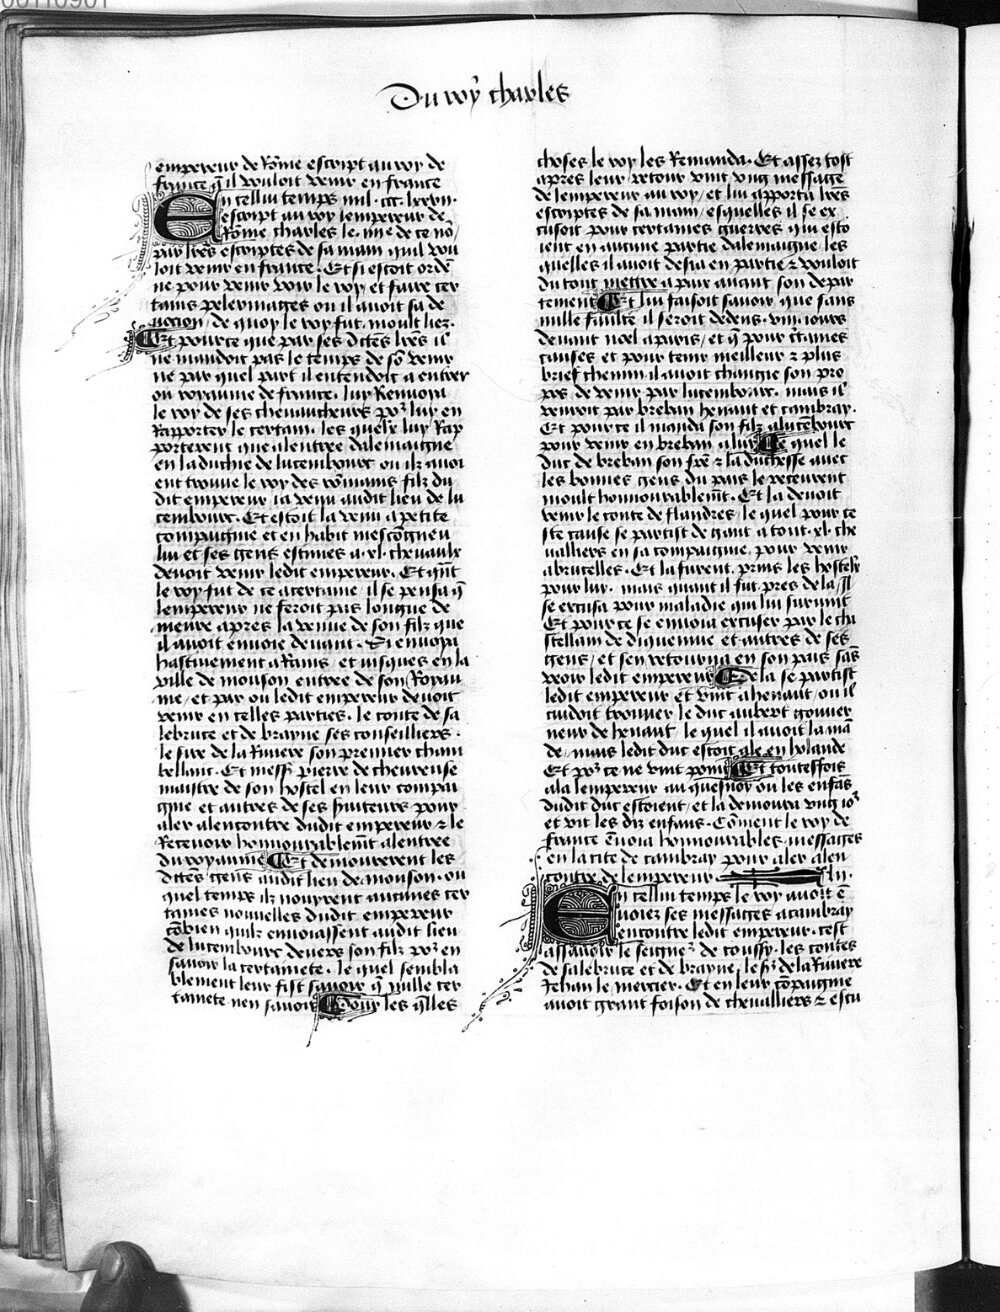 Du roy charles
empereur de Rome escript au roy de
france q̄ il vouloit venir en france
En cellui temps mil .ccc. lxxvii.
escript au roy lempereur de
Rōme charles le .iiiie. de ce nō/
par lrēs escriptes de sa main quil vou
loit venir en france. Et si estoit ordē
ne pour venir voir le roy et faire cer
tains pelerinages ou il auoit sa de
uocion / de quoy le roy fut moult liez.
Et pource que par ses dictes lrēs il
ne mandoit pas le temps de sō venir
ne par quel part il entendoit a entrer
ou royaume de france. luy Renuoya
le roy de ses cheuaucheurs por luy en
Rapporter le certain. les quelx luy Rap
porterent que alentree dalemaigne
en la duchie de lucembourc ou ilz auoi
ent trouue le roy des rōmains filz du
dit empereur ia venu audit lieu de lu
cembourc. Et estoit la venu a petite
compaignie et en habit mescōgneu
lui et ses gens estimes a .xl. cheuaulx
deuoit venir ledit empereur. Et quāt
le roy fut de ce acertaine / il se pensa q̄
lempereur ne feroit pas longue de
meure apres la venue de son filz que
il auoit enuoie deuant. Si enuoya
hastiuement a Rains / et iusques en la
ville de mouson entree de son Royau
me / et par ou ledit empereur deuoit
venir en celles parties. le conte de sa
lebruce et de brayne ses conseilliers.
le sire de la Riuiere son premier cham
bellant. Et messr̄ pierre de cheureuse
maistre de son hostel en leur compai
gnie et autres de ses s̄uiteurs pour
aler alencontre dudit empereur z le
Receuoir honnourablemt̄ a lentree
du royaume Et demourerent les
dictes gens audit lieu de mouson. ou
quel temps ilz nouyrent aucunes cer
taines nouuelles dudit empereur
cōbien quilz enuoiassent audit lieu
de lucembourc deuers son filz por en
sauoir la certainete. le quel sembla
blement leur fist sauoir q̄ nulle cer
tainete nen sauoit Pour les q̄lles
choses le roy les Remanda. Et assez tost
apres leur retour vint vng message
de lempereur au roy / et lui apporta lrēs
escriptes de sa main / esquelles il se ex
cusoit pour certaines guerres qui esto
ient en aucune partie dalemaigne les
quelles il auoit desia en partie z vouloit
du tout mettre a paix auant son depar
tement Et lui faisoit sauoir que sans
nulle faulte il seroit dedens .viii. iours
deuant noel a paris / et q̄ pour c̄taines
causes et pour tenir meilleur z plus
brief chemin il auoit changie son pro
pos de venir par lucembourc. mais il
venroit par breban henaut et cambray.
Et pource il manda son filz a lucēbourc
pour venir en breban a luy Le quel le
duc de breban son fre z la duchesse auec
les bonnes gens du pais le receurent
moult honnourablemt̄. Et la deuoit
venir le conte de flandres / le quel pour ce
ste cause se partist de gant a tout .xl. che
ualliers en sa compaignie pour venir
a bruxelles. Et la furent prins les hostelx
pour luy. mais quant il fut pres de la .ii.
se excusa pour maladie qui lui suruint
Et pource se enuoia excuser par le cha
stellain de diquemue et autres de ses
gens / et sen retourna en son pais sās
veoir ledit empereur De la se partist
ledit empereur et vint a henaut / ou il
cuidoit trouuer le duc aubert gouuer
neur de henaut le quel il auoit la mā
de / mais ledit duc estoit ale en holande
Et por ce ne vint point Et toutesfois
ala lempereur au quesnoy ou les enfās
dudit duc estoient / et la demoura vng ior
et vit les diz enfans. Cōment le roy de
france ēuoia honnourables messages
en la cite de cambray pour aler alen
contre de lempereur lii.
En cellui temps le roy auoit ē
uoiez ses messages a cambray
encontre ledit empereur. cest
assauoir le seigner de coussy. les contes
de salebruce et de brayne / le sr̄ de la Riuiere
Jehan le mercier. Et en leur cōpaignie
auoit grant foison de cheualliers z escu